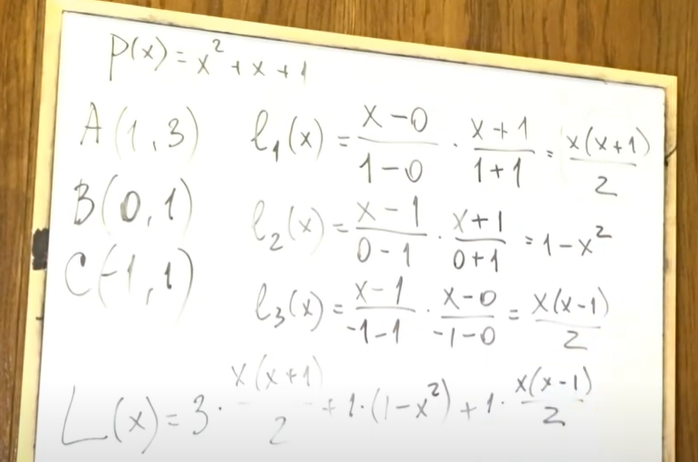 P(x) = x² + x + 1
A(1, 3) ℓ₁(x) = (x-0)/(1-0) · (x+1)/(1+1) = x(x+1)/2
B(0, 1) ℓ₂(x) = (x-1)/(0-1) · (x+1)/(0+1) = 1-x²
C(-1, 1) ℓ₃(x) = (x-1)/(-1-1) · (x-0)/(-1-0) = x(x-1)/2
L(x) = 3 · x(x+1)/2 + 1·(1-x²) + 1 · x(x-1)/2